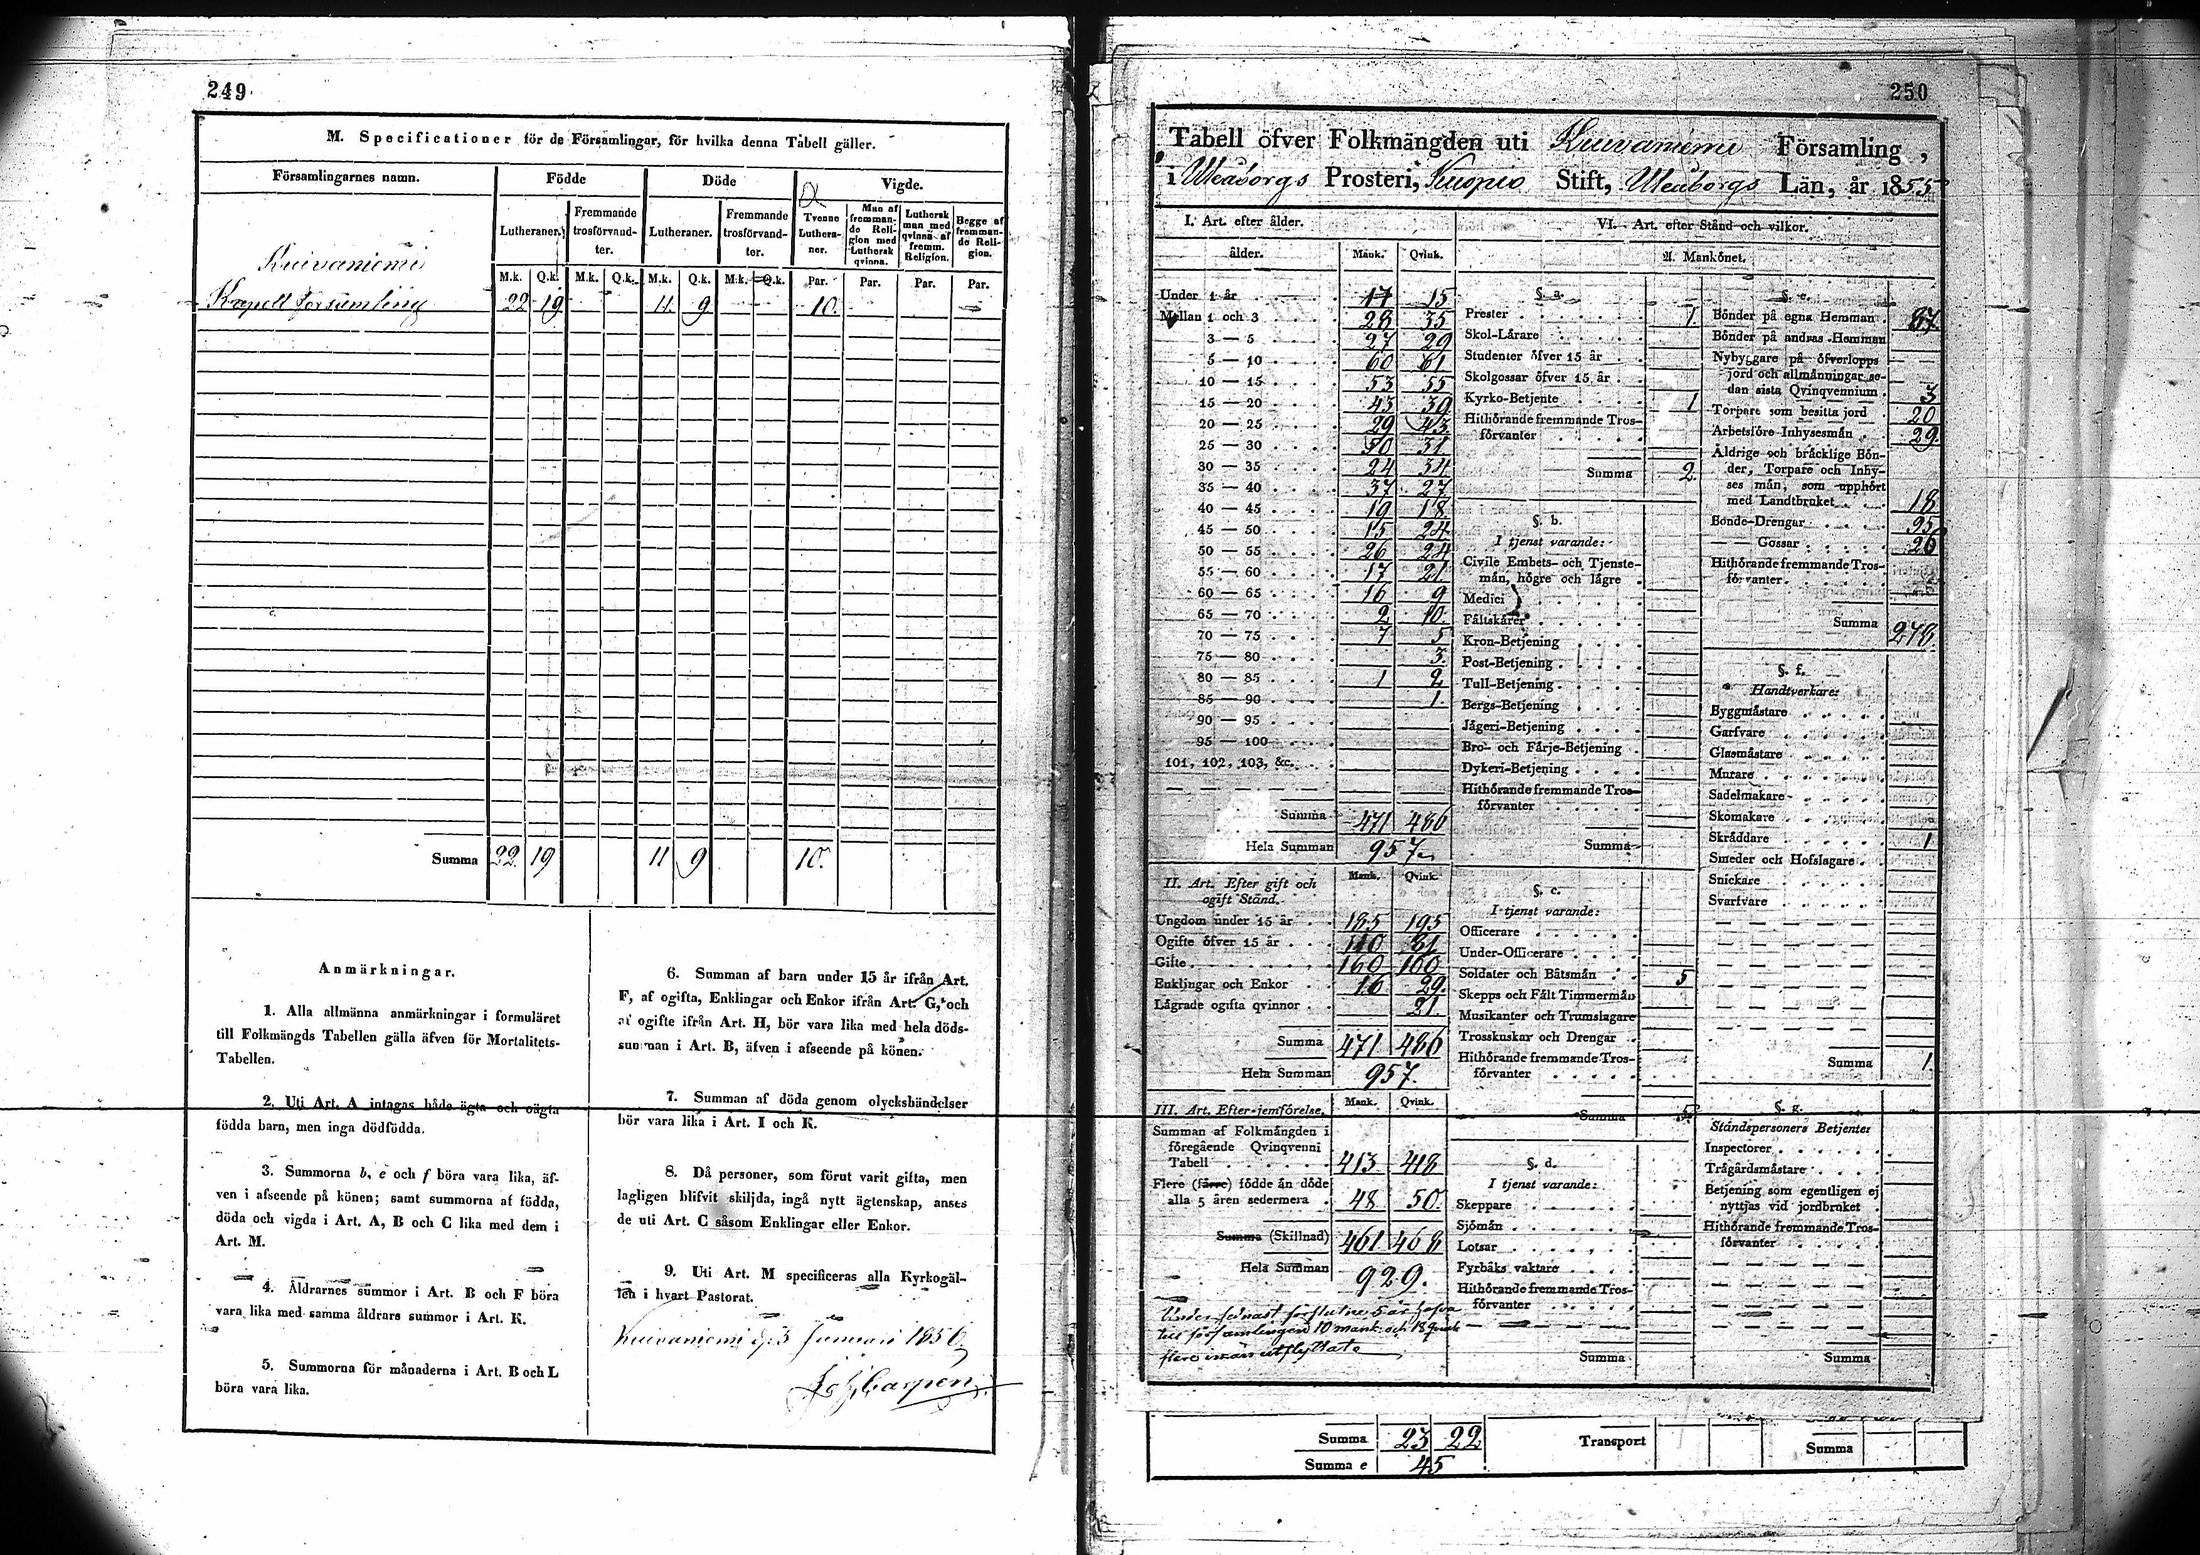 249
M. Specificationer för de Församlingar, för hvilka denna Tabell gäller.
Församlingarnes namn.
Födde
Döde
Vigde.
Lutheraner.
Fremmande trosförvandter.
Lutheraner.
Fremmande trosförvandter.
Tvenne Lutheraner.
Man af fremmande Religion med Luthersk qvinna.
Luthersk man med qvinna af fremm. Religion.
Begge af fremmande Religion.
M.k. Q.k. M.k. Q.k. M.k. Q.k. M.k. Q.k. Par. Par. Par. Par.
Kuivaniemi
Kapell församling 22 19 11 9 10.
Summa 22 19 11 9 10.
Anmärkningar.
1. Alla allmänna anmärkningar i formuläret
till Folkmängds Tabellen gälla äfven för Mortalitets-
Tabellen.
2. Uti Art. A intagas både ägta och oägta
födda barn, men inga dödfödda.
3. Summorna b, e och f böra vara lika, äf-
ven i afseende på könen; samt summorna af födda,
döda och vigda i Art. A, B och C lika med dem i
Art. M.
4. Åldrarnes summor i Art. B och F böra
vara lika med samma åldrars summor i Art. K.
5. Summorna för månaderna i Art. B och L
böra vara lika.
6. Summan af barn under 15 år ifrån Art.
F, af ogifta, Enklingar och Enkor ifrån Art. G, och
af ogifte ifrån Art. H, bör vara lika med hela döds-
summan i Art. B, äfven i afseende på könen.
7. Summan af döda genom olyckshändelser
bör vara lika i Art. I och K.
8. Då personer, som förut varit gifta, men
lagligen blifvit skiljda, ingå nytt ägtenskap, anses
de uti Art. C såsom Enklingar eller Enkor.
9. Uti Art. M specificeras alla Kyrkogäl-
len i hvart Pastorat.
Kuivaniemi d. 3 Januari 1856
250
Tabell öfver Folkmängden uti Kuivaniemi Församling,
i Uleåborgs Prosteri, Kuopio Stift, Uleåborgs Län, år 1855
I. Art. efter ålder.
ålder. Mank. Qvink.
Under 1 år 17 15
Mellan 1 och 3 28 35
3 — 5 27 29
5 — 10 60 61
10 — 15 53 55
15 — 20 43 39
20 — 25 29 43
25 — 30 31
30 — 35 24 34
35 — 40 37 27
40 — 45 19 18
45 — 50 15 24
50 — 55 26 24
55 — 60 17 21
60 — 65 16 9
65 — 70 2 10
70 — 75 7 5
75 — 80 3
80 — 85 1 2
85 — 90 1
90 — 95
95 — 100
101, 102, 103, &c.
Summa 471 486
Hela Summan 957
II. Art. Efter gift och ogift Stånd. Mank. Qvink.
Ungdom under 15 år 185 195
Ogifte öfver 15 år 110 81
Gifte 160 160
Enklingar och Enkor 16 29
Lägrade ogifta qvinnor 21
Summa 471 486
Hela Summan 957.
III. Art. Efter jemförelse. Mank. Qvink.
Summan af Folkmängden i
föregående Qvinqvenni
Tabell 413 418
Flere (färre) födde än döde
alla 5 åren sedermera 48 50
Summa (Skillnad) 461 468
Hela Summan 929.
Under sednast förflutne 5 år hafva
till församlingen 10 mank. och 18 qvink
flere in än utflyttat
VI. Art. efter Stånd och vilkor.
A. Mankönet.
§. a.
Prester 1
Skol-Lärare
Studenter öfver 15 år
Skolgossar öfver 15 år
Kyrko-Betjente 1
Hithörande fremmande Tros-
förvanter
Summa 2
§. b.
I tjenst varande:
Civile Embets- och Tjenste-
män, högre och lägre
Medici
Fältskärer
Kron-Betjening
Post-Betjening
Tull-Betjening
Bergs-Betjening
Jägeri-Betjening
Bro- och Färje-Betjening
Dykeri-Betjening
Hithörande fremmande Tros-
förvanter
Summa
§. c.
I tjenst varande:
Officerare
Under-Officerare
Soldater och Båtsmän 5
Skepps och Fält Timmermän
Musikanter och Trumslagare
Trosskuskar och Drengar
Hithörande fremmande Tros-
förvanter
Summa 5
§. d.
I tjenst varande:
Skeppare
Sjömän
Lotsar
Fyrbåks vaktare
Hithörande fremmande Tros-
förvanter
Summa
§. e.
Bönder på egna Hemman 87
Bönder på andras Hemman
Nybyggare på öfverlopps
jord och allmänningar se-
dan sista Qvinqvennium 3
Torpare som besitta jord 20
Arbetsföre Inhysesmän 29
Åldrige och bräcklige Bön-
der, Torpare och Inhy-
ses män, som upphört
med Landtbruket 18
Bonde-Drengar 95
— — Gossar 26
Hithörande fremmande Tros-
förvanter
Summa 278.
§. f.
Handtverkare:
Byggmästare
Garfvare
Glasmästare
Murare
Sadelmakare
Skomakare
Skräddare 1
Smeder och Hofslagare
Snickare
Svarfvare
Summa 1
§. g.
Ståndspersoners Betjente:
Inspectorer
Trägårdsmästare
Betjening som egentligen ej
nyttjas vid jordbruket
Hithörande fremmande Tros-
förvanter
Summa
Summa 23 22 Transport Summa
Summa e 45